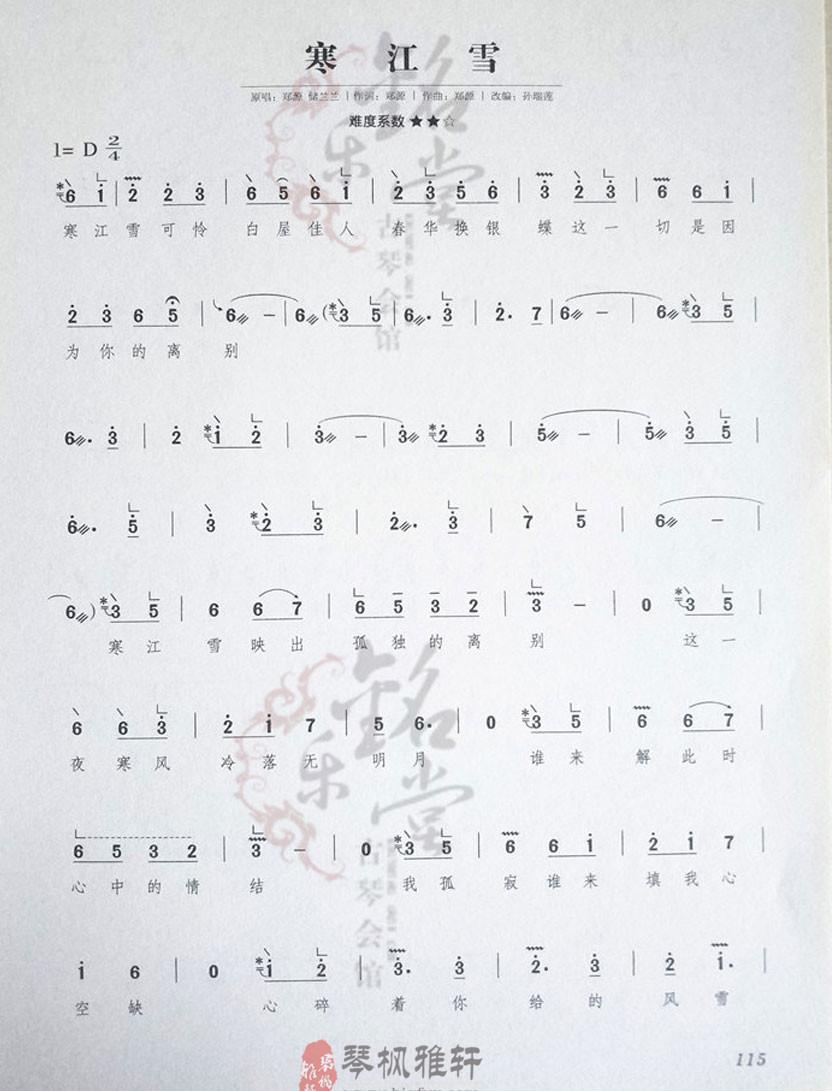 寒江雪
原唱：郑源 储兰兰 | 作词：郑源 | 作曲：郑源 | 改编：孙瑞莲
难度系数★★☆
1= D 2/4
6 i | 2 2 3 | 6 5 6 i | 2 3 5 6 | 3 2 3 | 6 6 i |
寒江雪可怜 白屋佳人 春华换银 蝶这一 切是因
2 3 6 5 | 6 – | 6 ( 3 5 | 6. 3 | 2. 7 | 6 – | 6 3 5 |
为你的离 别
6. 3 | 2 i 2 | 3 – | 3 2 3 | 5 – | 5 3 5 |
6. 5 | 3 2 3 | 2. 3 | 7 5 | 6 – |
6 ) 3 5 | 6 6 7 | 6 5 3 2 | 3 – | 0 3 5 |
寒江 雪映出 孤独的离 别 这一
6 6 3 | 2 i 7 | 5 6. | 0 3 5 | 6 6 7 |
夜寒风 冷落无 明月 谁来 解此时
6 5 3 2 | 3 – | 0 3 5 | 6 6 i | 2 i 7 |
心中的情 结 我孤 寂谁来 填我心
i 6 | 0 i 2 | 3. 3 | 2. 3 | 2 i. |
空缺 心碎 着你 给的 风雪
115
銘乐堂
古琴会馆
銘乐堂
古琴会馆
琴枫雅轩